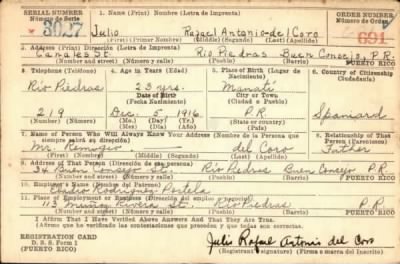 SERIAL NUMBER
Número de Serie
1. Name (Print) Nombre (Letra de Imprenta)
ORDER NUMBER
Número de Orden
Julio Rafael Antonio del Coro
(First) (Primer Nombre) (Middle) (Segundo) (Last) (Apellido)
691
2. Address (Print) Dirección (Letra de Imprenta)
St. Río Piedras Buen Consejo, P.R.
(Number) (Número) (Street) (Calle) (Town) (Pueblo) (Barrio) PUERTO RICO
3. Telephone (Teléfono)
4. Age in Years (Edad)
5. Place of Birth (Lugar de Nacimiento)
6. Country of Citizenship
Ciudadanía
Río Piedras
23 yrs.
Date of Birth
(Fecha Nacimiento)
Manatí
City or Town
(Ciudad o Pueblo)
219 Dec. 5, 1916. P.R. Spaniard
(Number) (Número) (Mo.) (Day) (Yr.)
(Mes) (Día) (Año)
State or country
(País)
7. Name of Person Who Will Always Know Your Address (Nombre de la Persona que siempre sabrá su dirección)
8. Relationship of That Person (Parentesco)
Mr. Remigio — del Coro Father
(First) (Primer Nombre) (Middle) (Segundo) (Last) (Apellido)
9. Address of That Person (Dirección de esa persona)
34 Buen Consejo St. Río Piedras Buen Consejo P.R.
(Number) (Número) (Street) (Calle) (Town) (Pueblo) (Barrio) PUERTO RICO
10. Employer's Name (Nombre del Patrono)
Rodríguez Portela
11. Place of Employment or Business (Dirección del empleo o negocio)
113 Muñoz Rivera St. Río Piedras P.R.
(Number) (Número) (Street) (Calle) (Town) (Pueblo) PUERTO RICO
I Affirm That I Have Verified Above Answers And That They Are True.
(Afirmo que he verificado las contestaciones que anteceden y que son ciertas.)
REGISTRATION CARD
D. S. S. Form 1
(PUERTO RICO)
Julio Rafael Antonio del Coro
(Registrant signature) (Firma o marca del Inscrito)